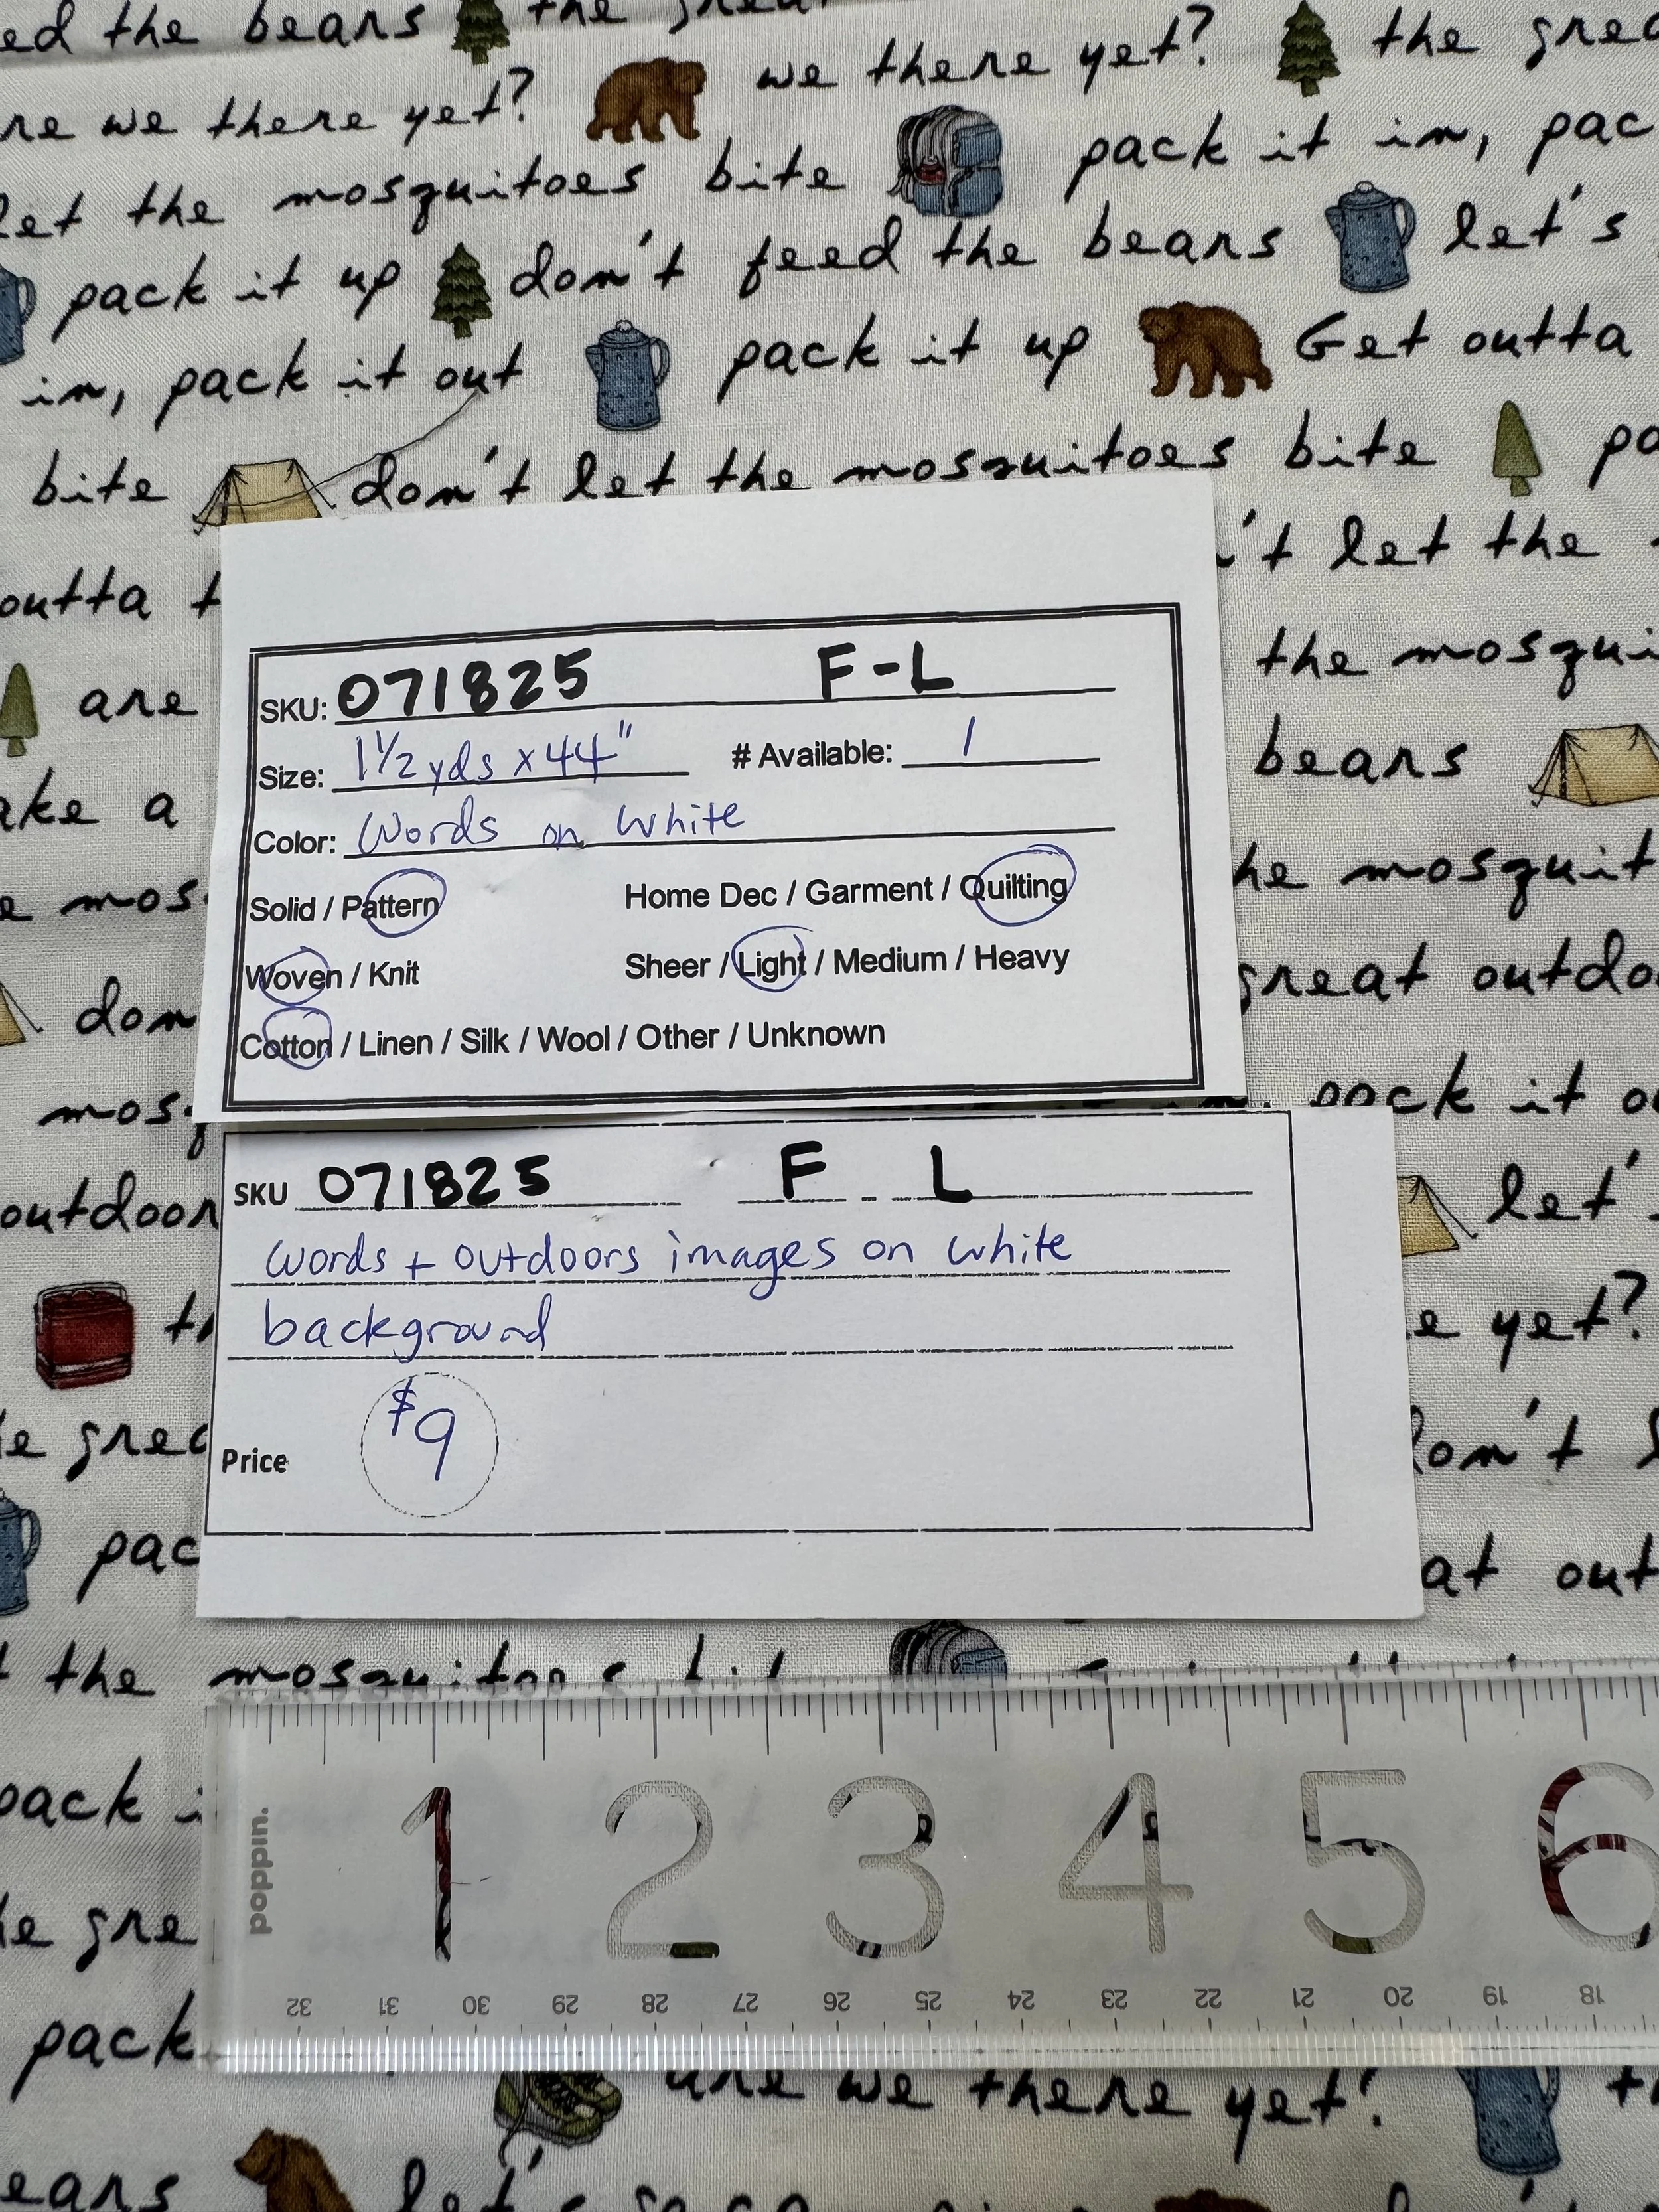 ed the bears the
re we there yet? we there yet? the grea
let the mosquitoes bite pack it in, pac
pack it up don't feed the bears let's
in, pack it out pack it up Get outta
bite don't let the mosquitoes bite
outta 't let the
the mosqui
SKU: 071825 F-L
are
Size: 1 1/2 yds x 44" # Available: 1
bears
ake a
Color: Words on White
Solid / Pattern Home Dec / Garment / Quilting
mos he mosquit
Woven / Knit Sheer / Light / Medium / Heavy
don great outdo
Cotton / Linen / Silk / Wool / Other / Unknown
mosq pack it
SKU 071825 F - L
outdoor let'
words + outdoors images on white
background
yet?
Price $9
e grea don't
pac at out
the mosquitoes
pack
poppin.
1 2 3 4 5 6
e gre
32 31 30 29 28 27 26 25 24 23 22 21 20 19 18
pack
are we there yet?
ears let's